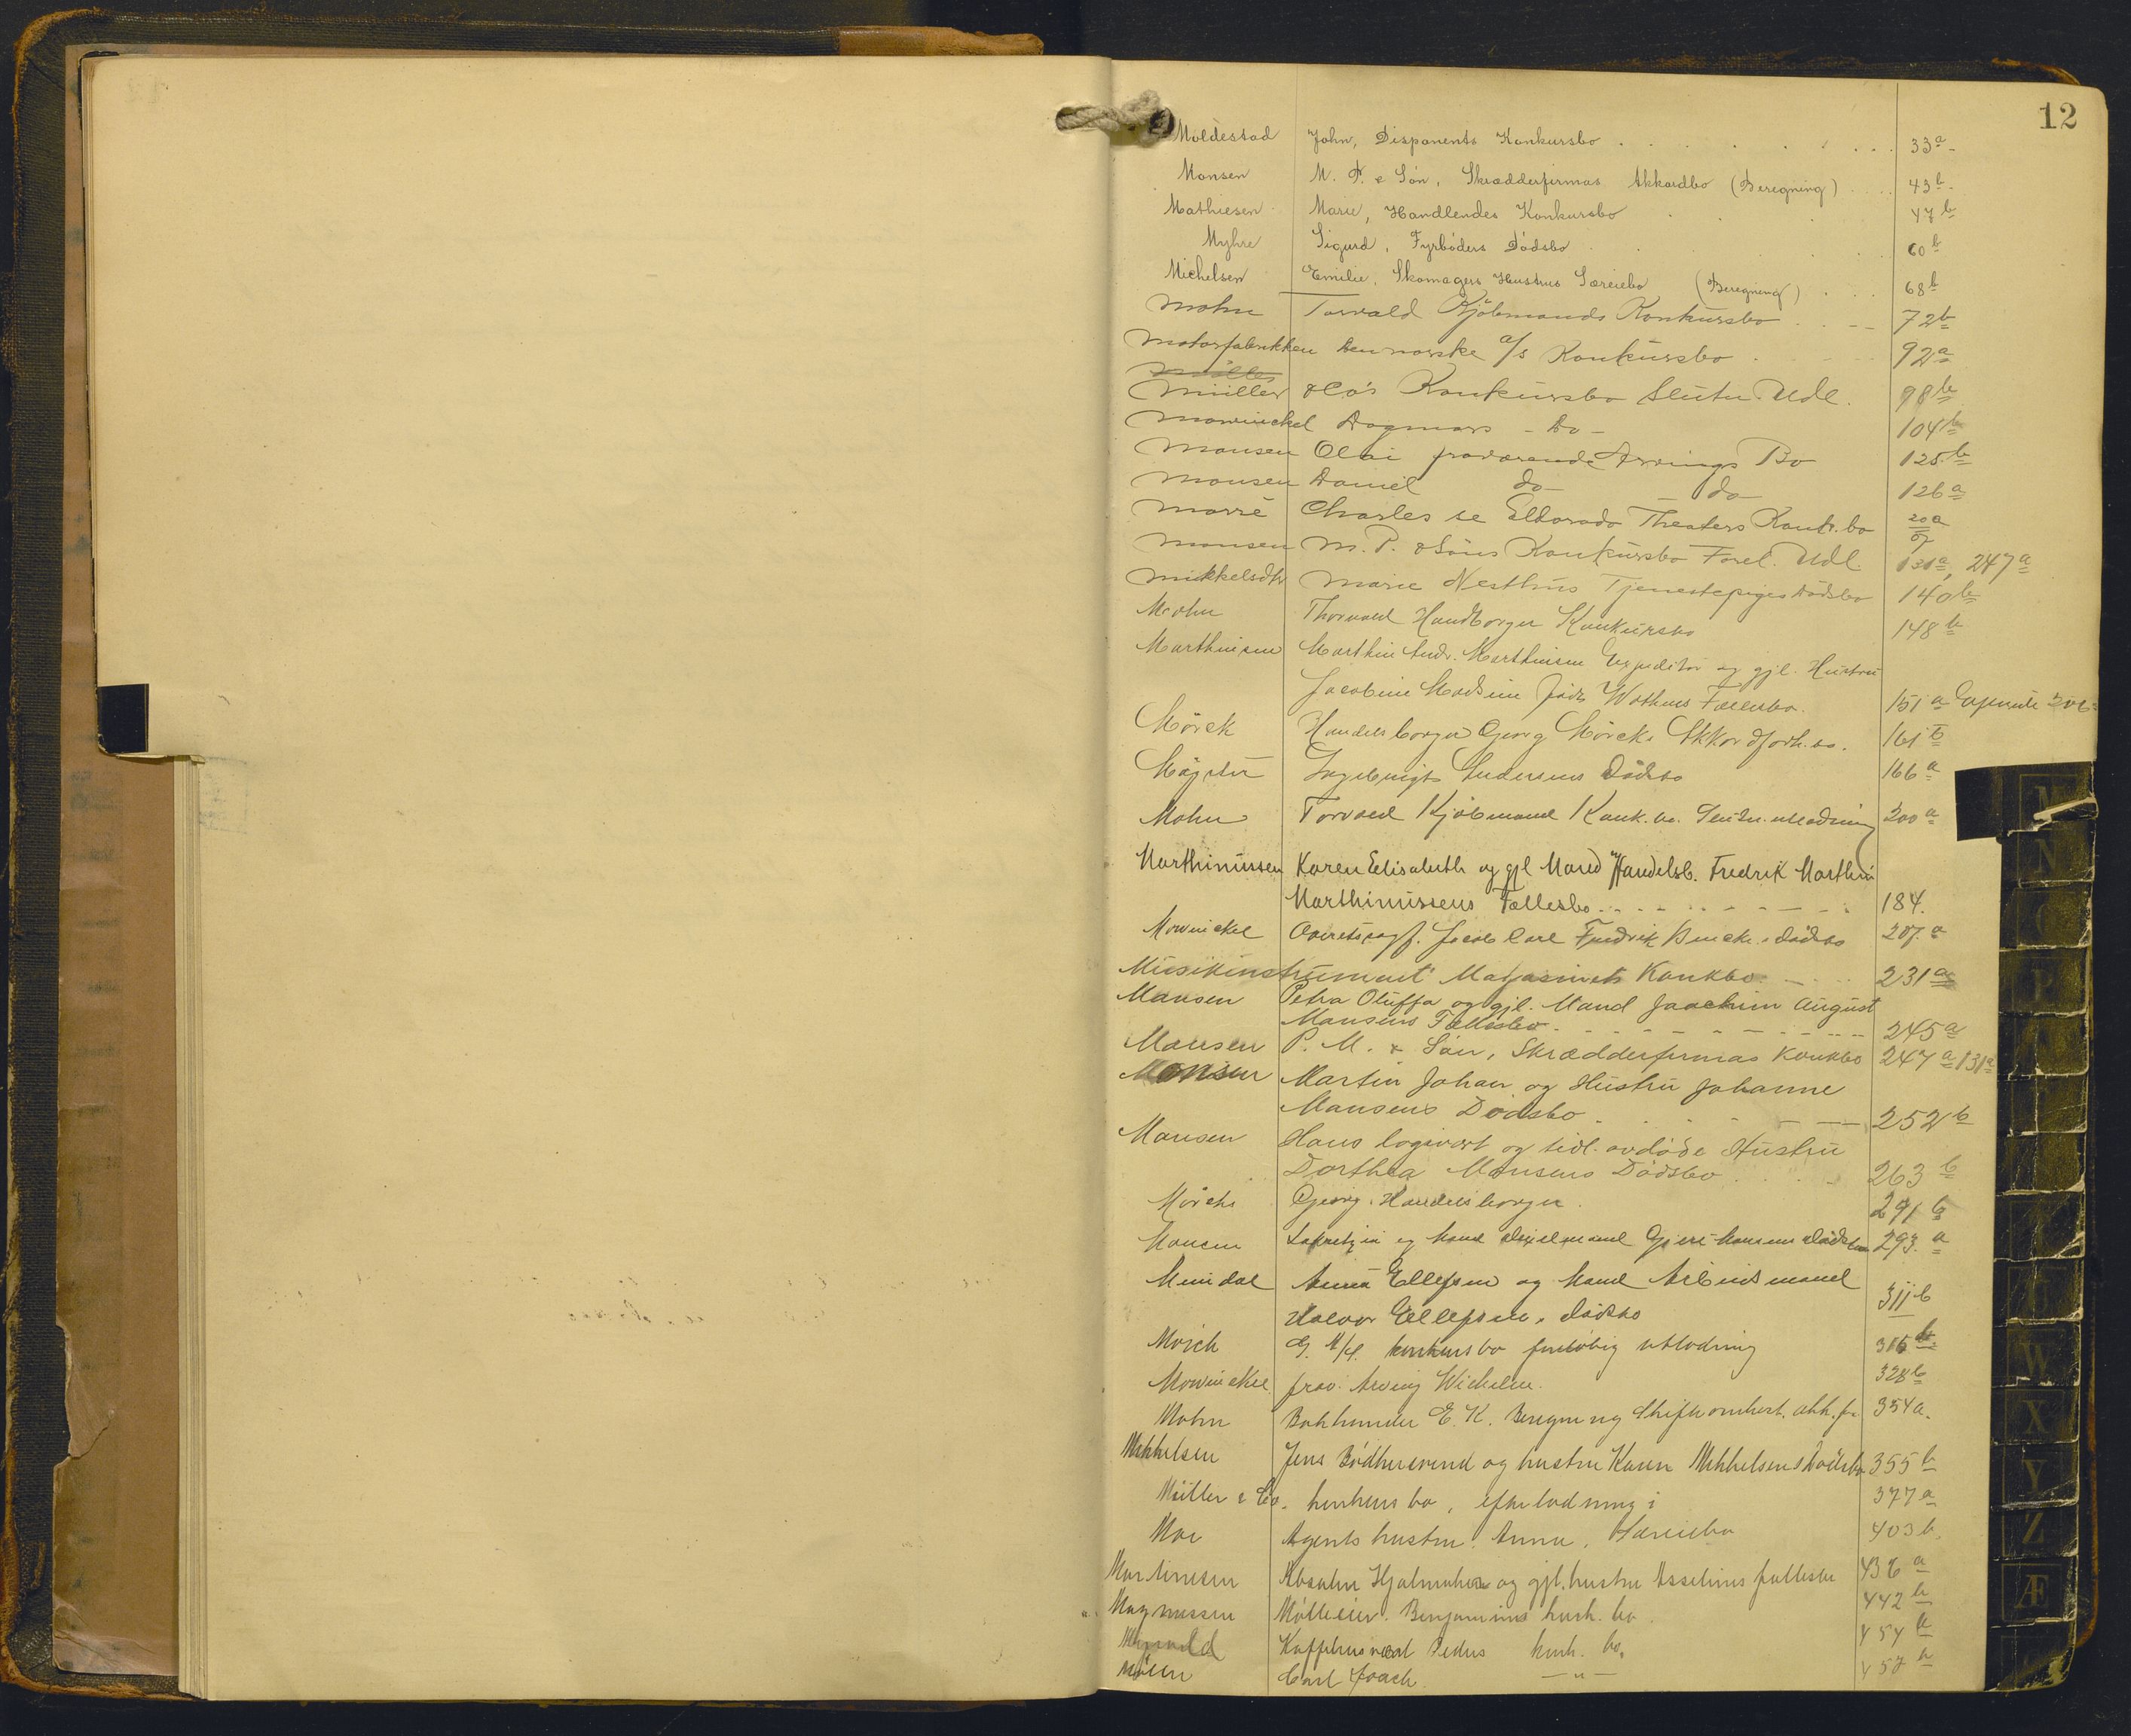 12
Moldestad John, Disponents Konkursbo 33a
Monsen M. P. & Søn, Skrædderfirmas Akkordbo (Beregning) 43b
Mathiesen Marie, Handlendes Konkursbo 47b
Myhre Sigurd, Fyrbøders Dødsbo 60b
Michelsen Emilie, Skomagers Hustrus Særeiebo (Beregning) 68b
Mohn Torvald Kjøbmands Konkursbo 72b
Motorfabrikken den norske a/s Konkursbo 92a
Müller
Müller & Co's Konkursbo Slutn. Udl. 98b
Mowinckel Dagmars - do - 104b
Monsen Olai fraværende Arvings Bo 125b
Monsen Daniel do do 126a
Morré Charles se Eldorado Theaters Konk. bo 20a
Monsen M. P. & Søns Konkursbo Forel. Udl. 131a, 247a
Mikkelsdtr Marie Nesthus Tjenestepiges Dødsbo 140b
Mohn Thorvald Handborger Konkursbo 148b
Marthinsen Marthin Andr. Marthinsen Expeditør og gjl. Hustru
Jacobine Madsine født Wathnes Fællesbo. 151a
Mørck Handelsborger Georg Mørcks Akkordforh. bo. 161b
Møgster Ingebrigt Andersens Dødsbo 166a
Mohn Torvald Kjøbmand Konk. bo. Slutn. utlodning 200a
Marthinussen Karen Elisabeth og gjl Mand Handelsb. Fredrik Marthin
Marthinussens Fællesbo 184.
Mowinckel Overetssagf. Jacob Carl Fredrik Bincks dødsbo 207.a
Musikinstrument Magasinets Konkbo 231a
Monsen Petra Oluffa og gjl. Mand Joachim August
Monsens Fællesbo 245a
Monsen P. M. & Søn, Skrædderfirmas Konkbo 247a 131a
Monsen Martin Johan og Hustru Johanne
Monsens Dødsbo 252b
Monsen Hans logivært og tidl. avdøde Hustru
Dorthea Monsens Dødsbo 263b
Mørchs Georg, Handelsborger. 291b
Monsen og Mand Monsens Dødsbo 293.a
Mundal Anna Ellefsen og Mand Arbeidsmand
Halvor Ellefsens dødsbo 311b
Mørch G. A/S. konkursbo foreløbig utlodning 316b
Mowinckel frav. Arving Wilhelm. 328b
Mohn Bokhandler E. K. Beregning Skifteomkost. akk. fr. 354a.
Mikkelsen Jens og hustru Karen Mikkelsens Dødsbo 355b
Müller & Co. konkurs bo, efterlodning i 377a
Moe Agents hustru Anna, Særeiebo 403b.
Martinesen Hjalmar og gjl. hustru fællesbo 436a
Magnussen Mølleeier Benjamins konk. bo 442b
Kaffehusvært Peders konk. bo. 454b
Carl Joach. — " — 457a
M N O P W X Y Z Æ